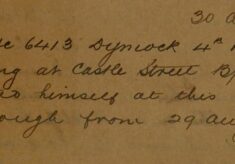 30 a
6413 Dymock 4th
at Castle Street B
himself at this
ough from 29 Au